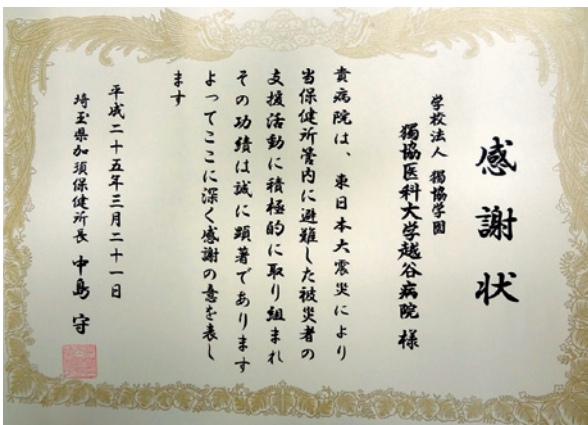 感謝状
学校法人 獨協学園
獨協医科大学越谷病院 様
貴病院は、東日本大震災により
当保健所管内に避難した被災者の
支援活動に積極的に取り組まれ
その功績は誠に顕著であります
よってここに深く感謝の意を表し
ます
平成二十五年三月二十一日
埼玉県加須保健所長 中島 守